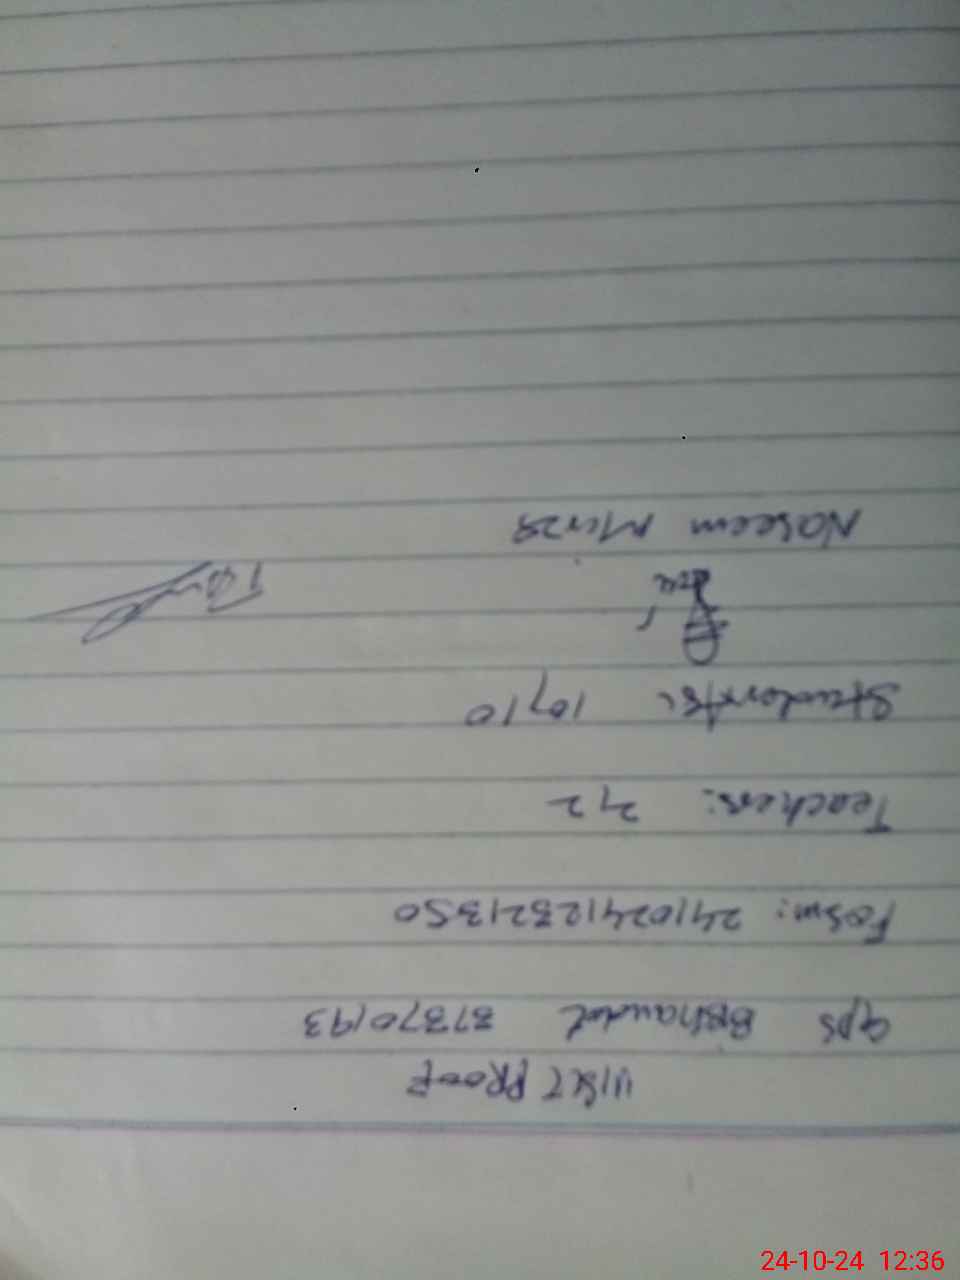 VISIT PROOF
GPS Bhandal 37370193
Fosm: 24102412321350
Teachers: 2,2
Students: 10,10
Naseem Mirza
24-10-24 12:36